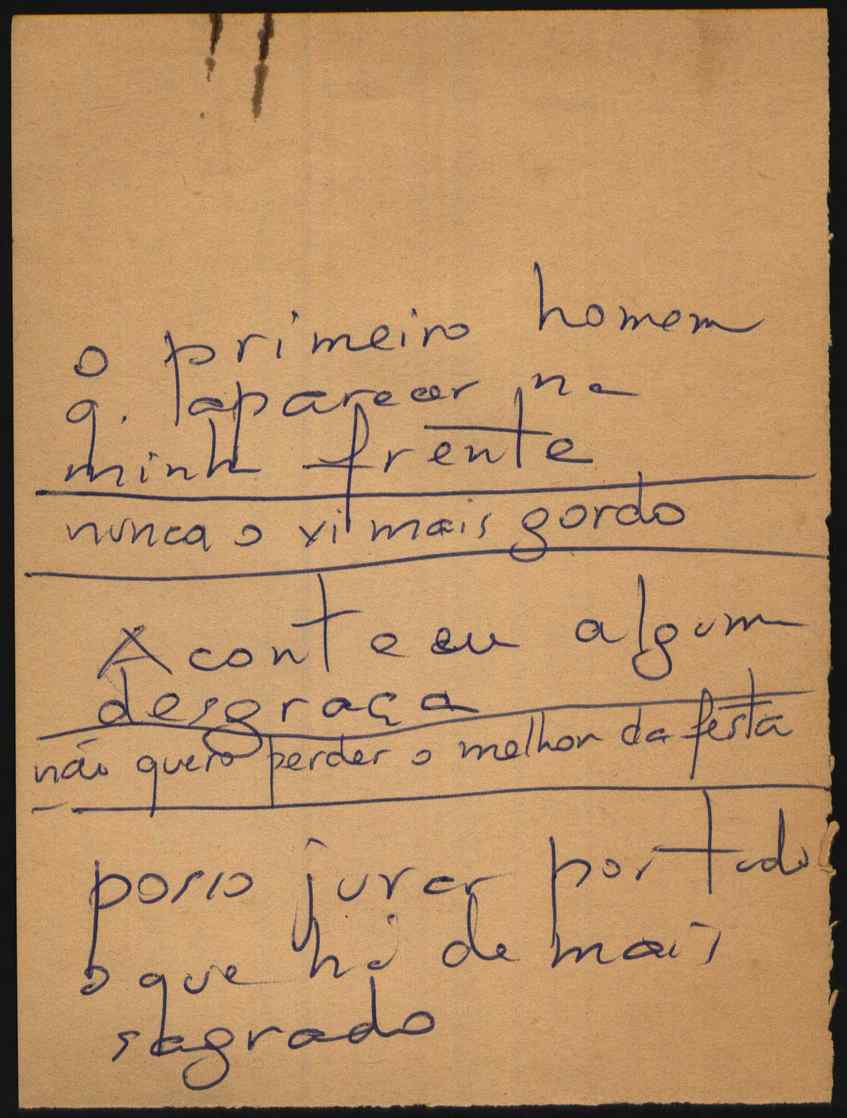 o primeiro homem
q. aparecer na
minh frente
nunca o vi mais gordo
Aconteceu algum
desgraça
não quero perder o melhor da festa
posso jurar por tudo
o que há de mais
sagrado